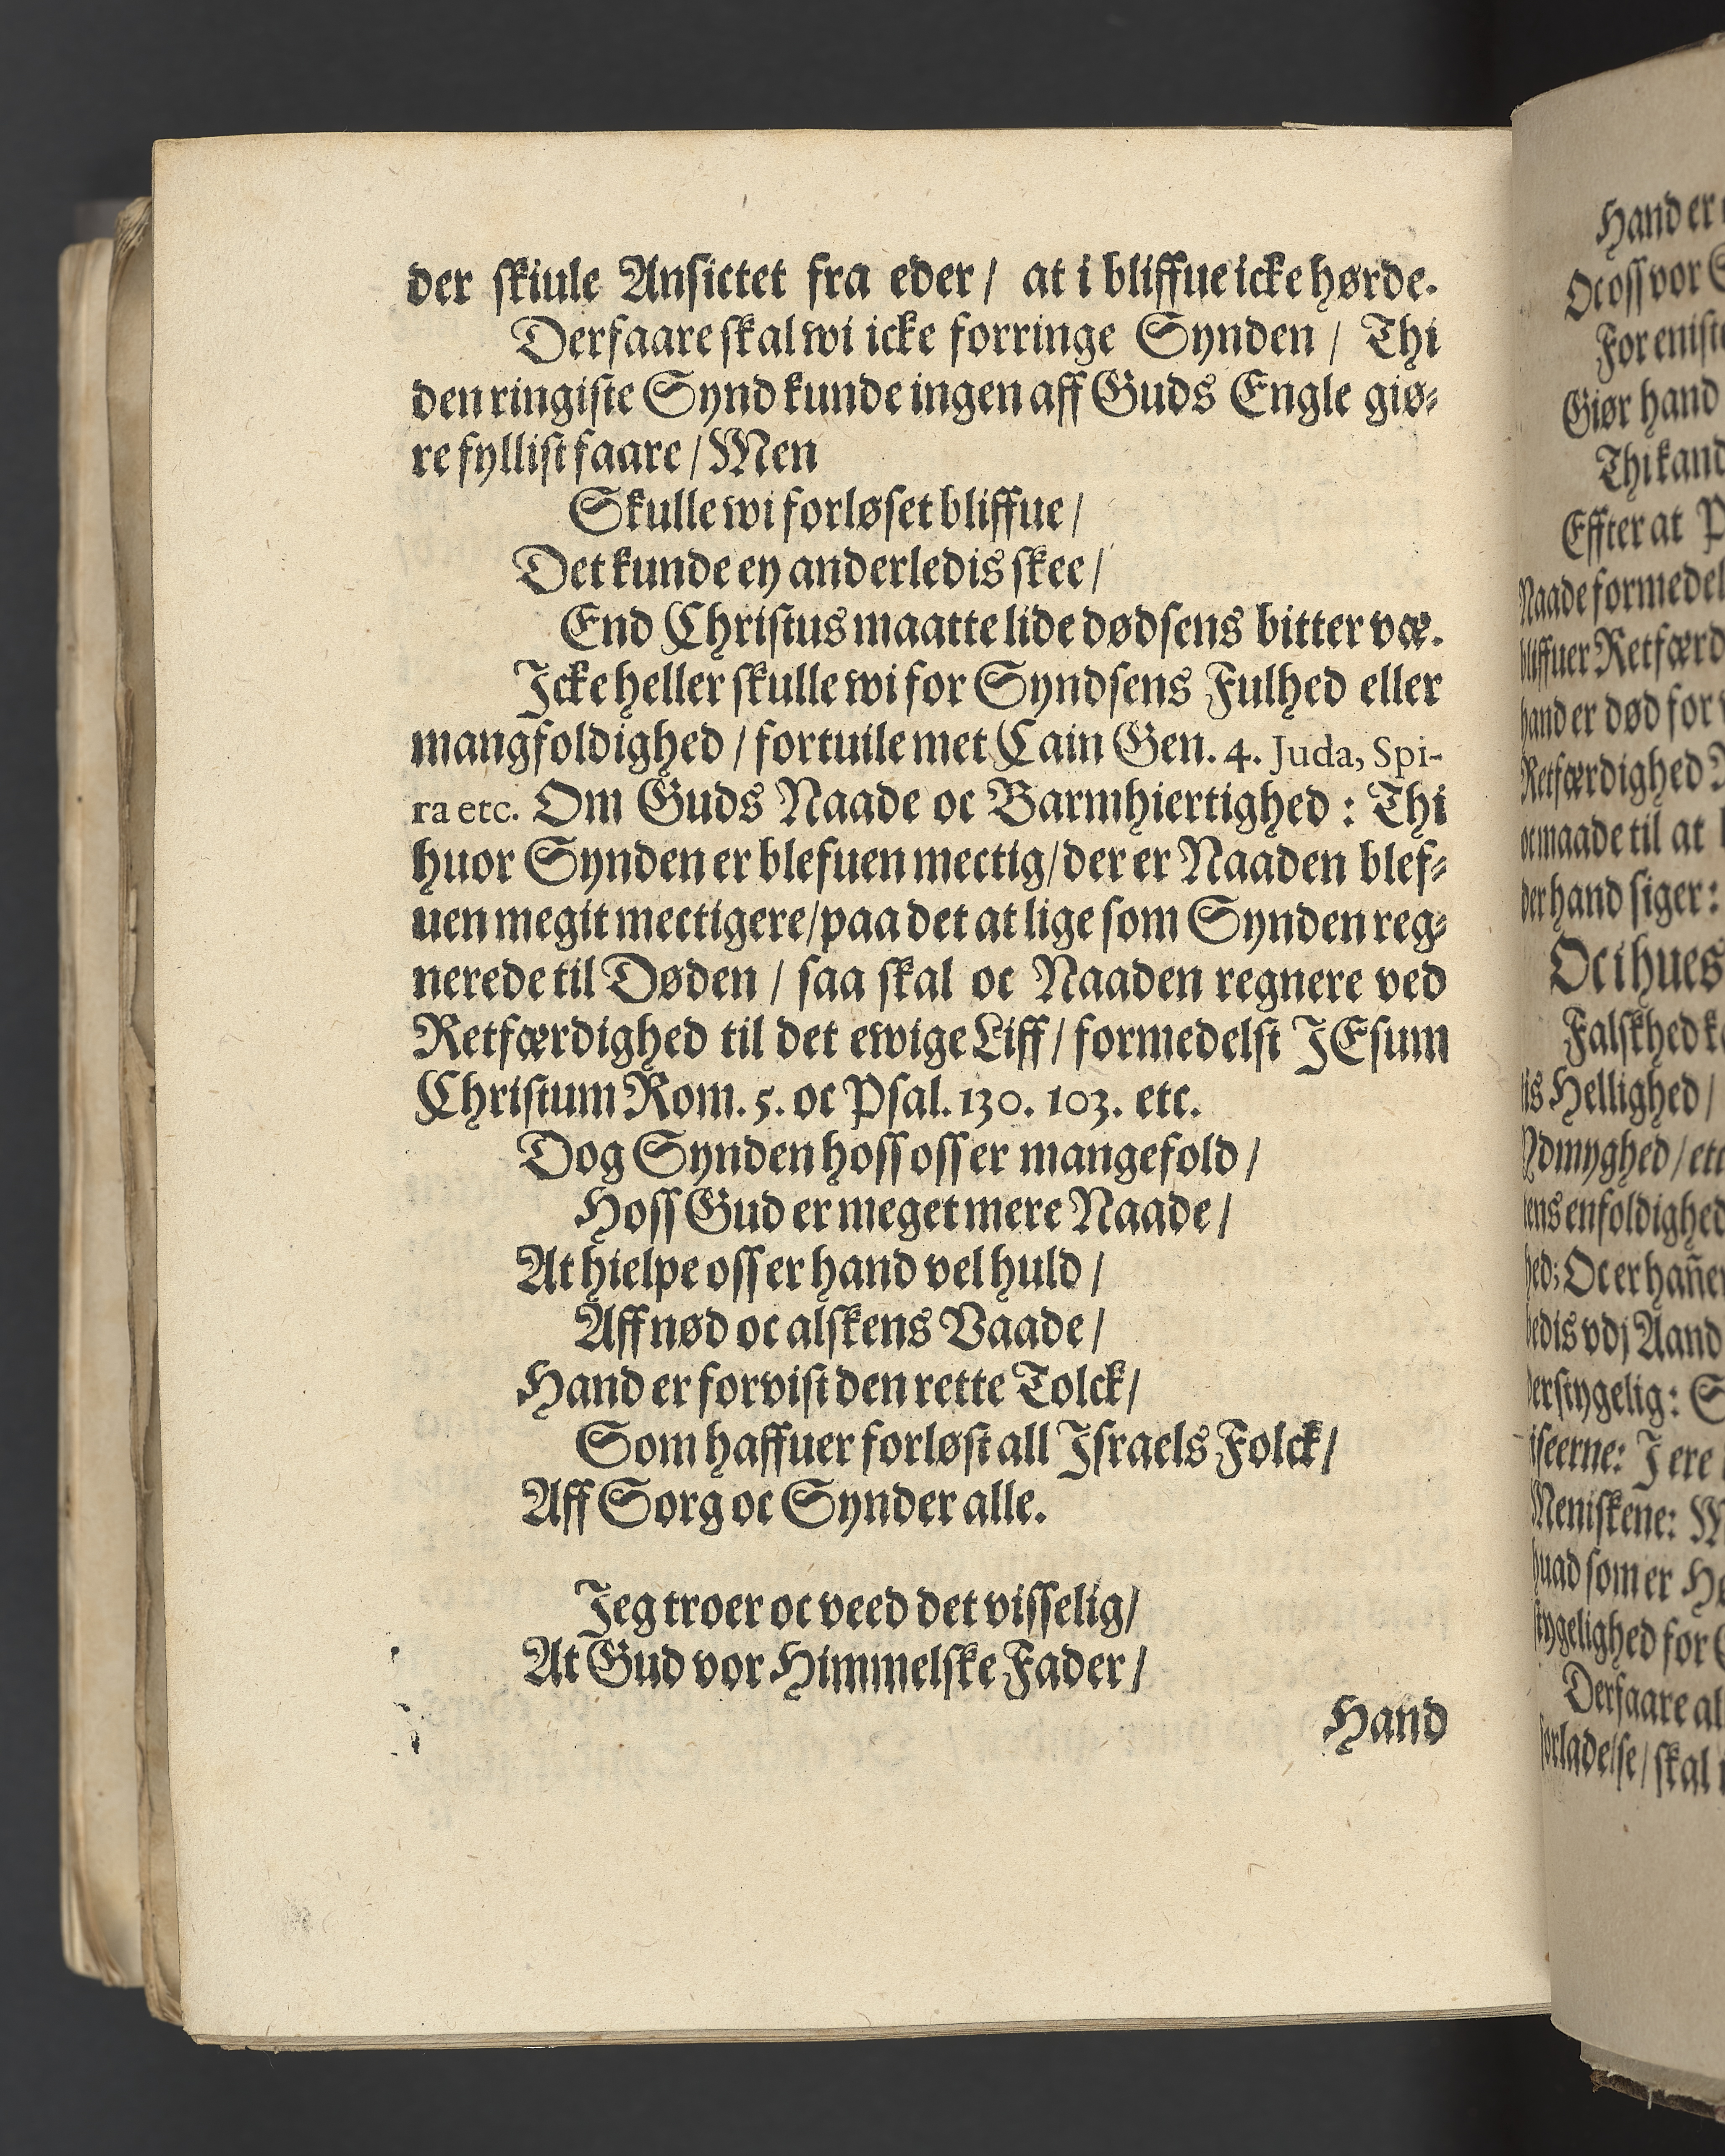 der skiule Ansictet fra eder / at i bliffue icke hørde.
Derfaare skal wi icke forringe Synden / Thi
den ringiste Synd kunde ingen aff Guds Engle giø⸗
re fyllist faare / Men
Skulle wi forløset bliffue /
Det kunde ey anderledis skee /
End Christus maatte lide dødsens bitter væ.
Icke heller skulle wi for Syndsens Fulhed eller
mangfoldighed / fortuile met Cain Gen. 4. Juda, Spi-
ra etc. Om Guds Naade oc Barmhiertighed : Thi
huor Synden er blefuen mectig / der er Naaden blef⸗
uen megit mectigere / paa det at lige som Synden reg⸗
nerede til Døden / saa skal oc Naaden regnere ved
Retfærdighed til det ewige Liff / formedelst JEsum
Christum Rom. 5. oc Psal. 130. 103. etc.
Dog Synden hoss oss er mangefold /
Hoss Gud er meget mere Naade /
At hielpe oss er hand vel huld /
Aff nød oc alskens Vaade /
Hand er forvist den rette Tolck /
Som haffuer forløst all Israels Folck /
Aff Sorg oc Synder alle.
Jeg troer oc veed det visselig /
At Gud vor Himmelske Fader /
Hand
Hand er
Oc oss vor
For enist
Giør hand
Thi kand
Effter at
Naade formedel
bliffuer Retfærd
hand er død for
Retfærdighed
oc maade til at
der hand siger :
Oc i hues
Falskhed
is Hellighed /
Ydmyghed / etc
tens enfoldighed
hed; Oc er hañer
bedis vdj Aand
derstygelig :
iseerne: J ere
Meniskene:
huad som er
stygelighed for
Derfaare al
forladelse / skal